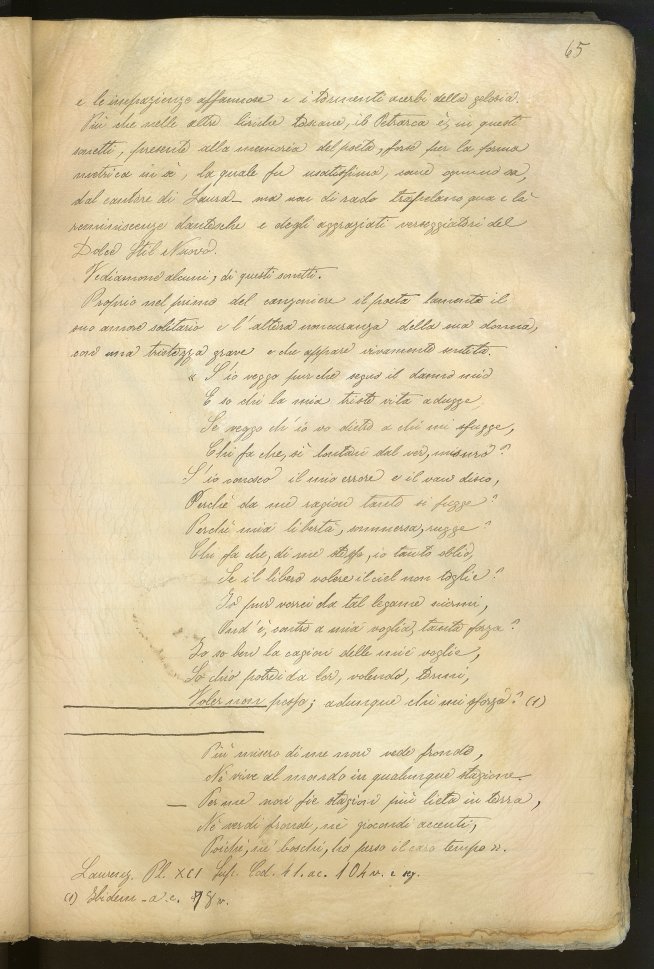 65
e le impazienze affannose e i tormenti acerbi della gelosia.
Più che nelle altre liriche toscane, il Petrarca è, in questi
sonetti, presente alla memoria del poeta, forse per la forma
metrica in sè, la quale fu usatissima, come ognuno sa,
dal cantore di Laura_ ma non di rado trapelano qua e là
reminiscenze dantesche e degli aggraziati verseggiatori del
Dolce Stil Nuovo.
Vediamone alcuni, di questi sonetti.
Proprio nel primo del canzoniere il poeta lamenta il
suo amore solitario e l'altera noncuranza della sua donna,
con una tristezza grave e che appare vivamente sentita.
« S'io veggo pur che seguo il danno mio
E so chi la mia trista vita adugge,
Se veggo ch'io vo dietro a chi mi sfugge,
Chi fa che, sì lontan dal ver, m'invio?
S'io conosco il mio errore e il van disio,
Perchè da me ragion tanto si fugge?
Perchè mia libertà, sommersa, rugge?
Chi fa che, di me stesso, io tanto oblio,
Se il libero volere il ciel non toglie?
Io pur vorrei da tal legame sciormi,
Ond'è, contro a mia voglia, tanta forza?
Io so ben la cagion delle mie voglie,
So ch'io potrei da lor, volendo, tormi,
Voler non posso; adunque chi mi sforza? (1)
Più misero di me non vede fronde,
Nè vive al mondo in qualunque stazione_
_ Per me non fie stazion più lieta in terra,
Nè verdi fronde, nè giocondi accenti,
Poichè, nè boschi, ho perso il caro tempo ».
Laurenz. Pl. XCI Sup. Cod. 41. ac. 104 v. e seg.
(1) Ibidem - a c. 78 v.